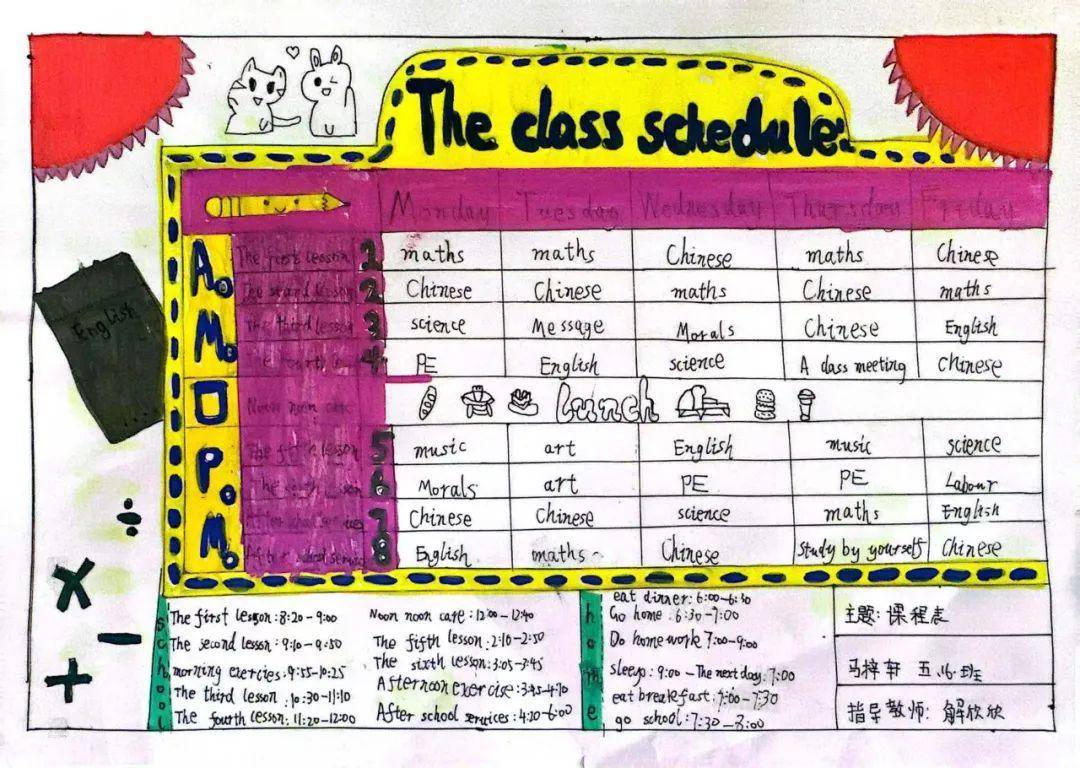 The class schedule:
Monday Tuesday Wednesday Thursday Friday
A. M. The first lesson 1 maths maths Chinese maths Chinese
The second lesson 2 Chinese Chinese maths Chinese maths
The third lesson 3 science Message Morals Chinese English
The fourth 4 PE English science A class meeting Chinese
Noon noon care Lunch
P. M. The fifth lesson 5 music art English music science
The sixth lesson 6 Morals art PE PE Labour
After school services 7 Chinese Chinese science maths English
After school service 8 English maths Chinese Study by yourself Chinese
English
÷
×
−
+
school
The first lesson: 8:20-9:00
The second lesson: 9:10-9:50
morning exercies: 9:55-10:25
The third lesson: 10:30-11:10
The fourth lesson: 11:20-12:00
Noon noon cafe: 12:00-12:40
The fifth lesson: 2:10-2:50
The sixth lesson: 3:05-3:45
Afternoon exercise: 3:45-4:10
After school services: 4:10-6:00
home
eat dinner: 6:00-6:30
Go home: 6:30-7:00
Do home work 7:00-9:00
sleep: 9:00-The next day: 7:00
eat breakfast: 7:00-7:30
go school: 7:30-8:00
主题: 课程表
马梓轩 五.16.班
指导教师: 解欣欣